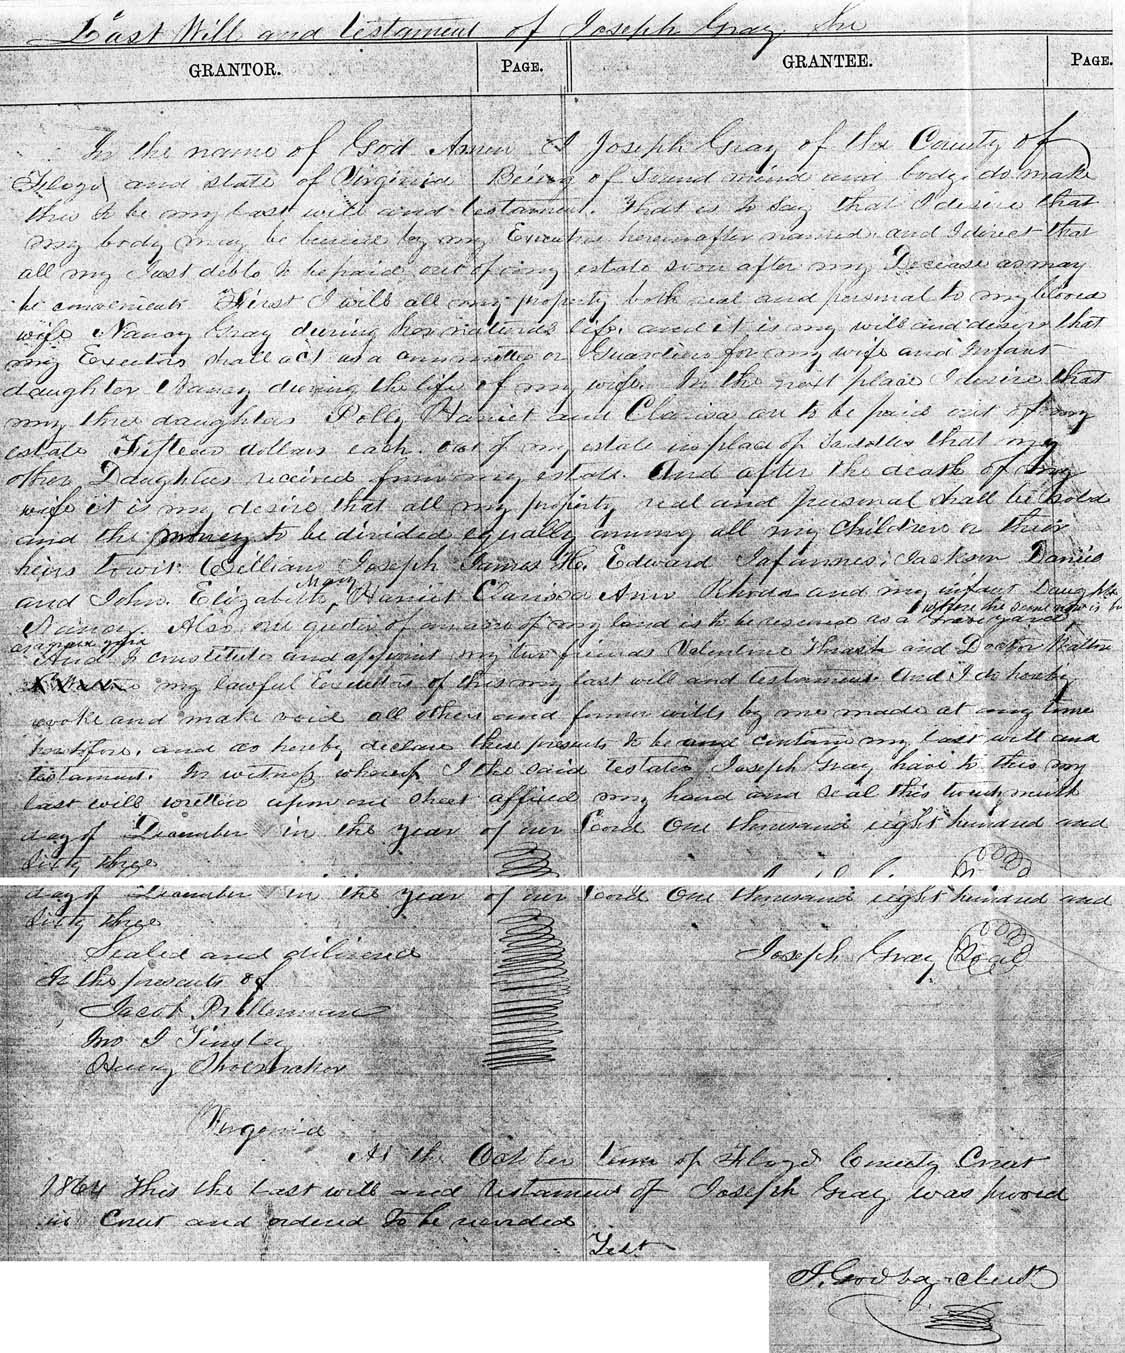 Last Will and testament of Joseph Gray Snr
GRANTOR. PAGE. GRANTEE. PAGE.
In the name of God Amen I Joseph Gray of the County of
Floyd and state of Virginia Being of Sound mind and body do make
this to be my last will and testament. That is to say that I desire that
my body may be buried by my Executors hereinafter named and I direct that
all my Just debts to be paid out of my estate soon after my Decease as may
be convenient First I will all my property both real and personal to my beloved
wife Nancy Gray during her natural life. and it is my will and desire that
my Exectors shall act as a committee or Guardian for my wife and Infant
daughter Nancy during the life of my wife In the next place I desire that
my three daughters Polly Harriet and Clarisa are to be paid out of my
estate Fifteen dollars each out of my estate in place of Saddles that my
other Daughters received from my estate And after the death of my
wife it is my desire that all my property real and personal shall be sold
and the money to be divided equally among all my Children or their
heirs towit William Joseph James H. Edward Jackson Daniel
and John. Elizabeth, Mary Harriet Clarissa Ann Rhoda and my infant Daughter
Nancy. Also one quder of an acre of my land is to be reserved as a Grave yard where the same now is
as a grave yard
And I constitute and appoint my two friends Valentine Thrash and Doctor
my lawful Executors of this my last will and testament And I do hereby
revoke and make void all others and former wills by me made at any time
heretifore. and do hereby declare these presents to be and contain my last will and
testament. In witness whereof I the said testator Joseph Gray have to this my
last will written upon one sheet affixed my hand and seal this
day of December in the year of our Lord One thousand eight hundred and
Sixty three
day of December in the year of our Lord One thousand eight hundred and
Sixty three
Sealed and delivered Joseph Gray Seal
In the presents of
Jacob
Jno I Tinsley
Henry Shoemaker
Virginia
At the October term of Floyd County Court
1864 This the Last will and testament of Joseph Gray was proved
in Court and ordered to be recorded
Test
J. Godbey clerk